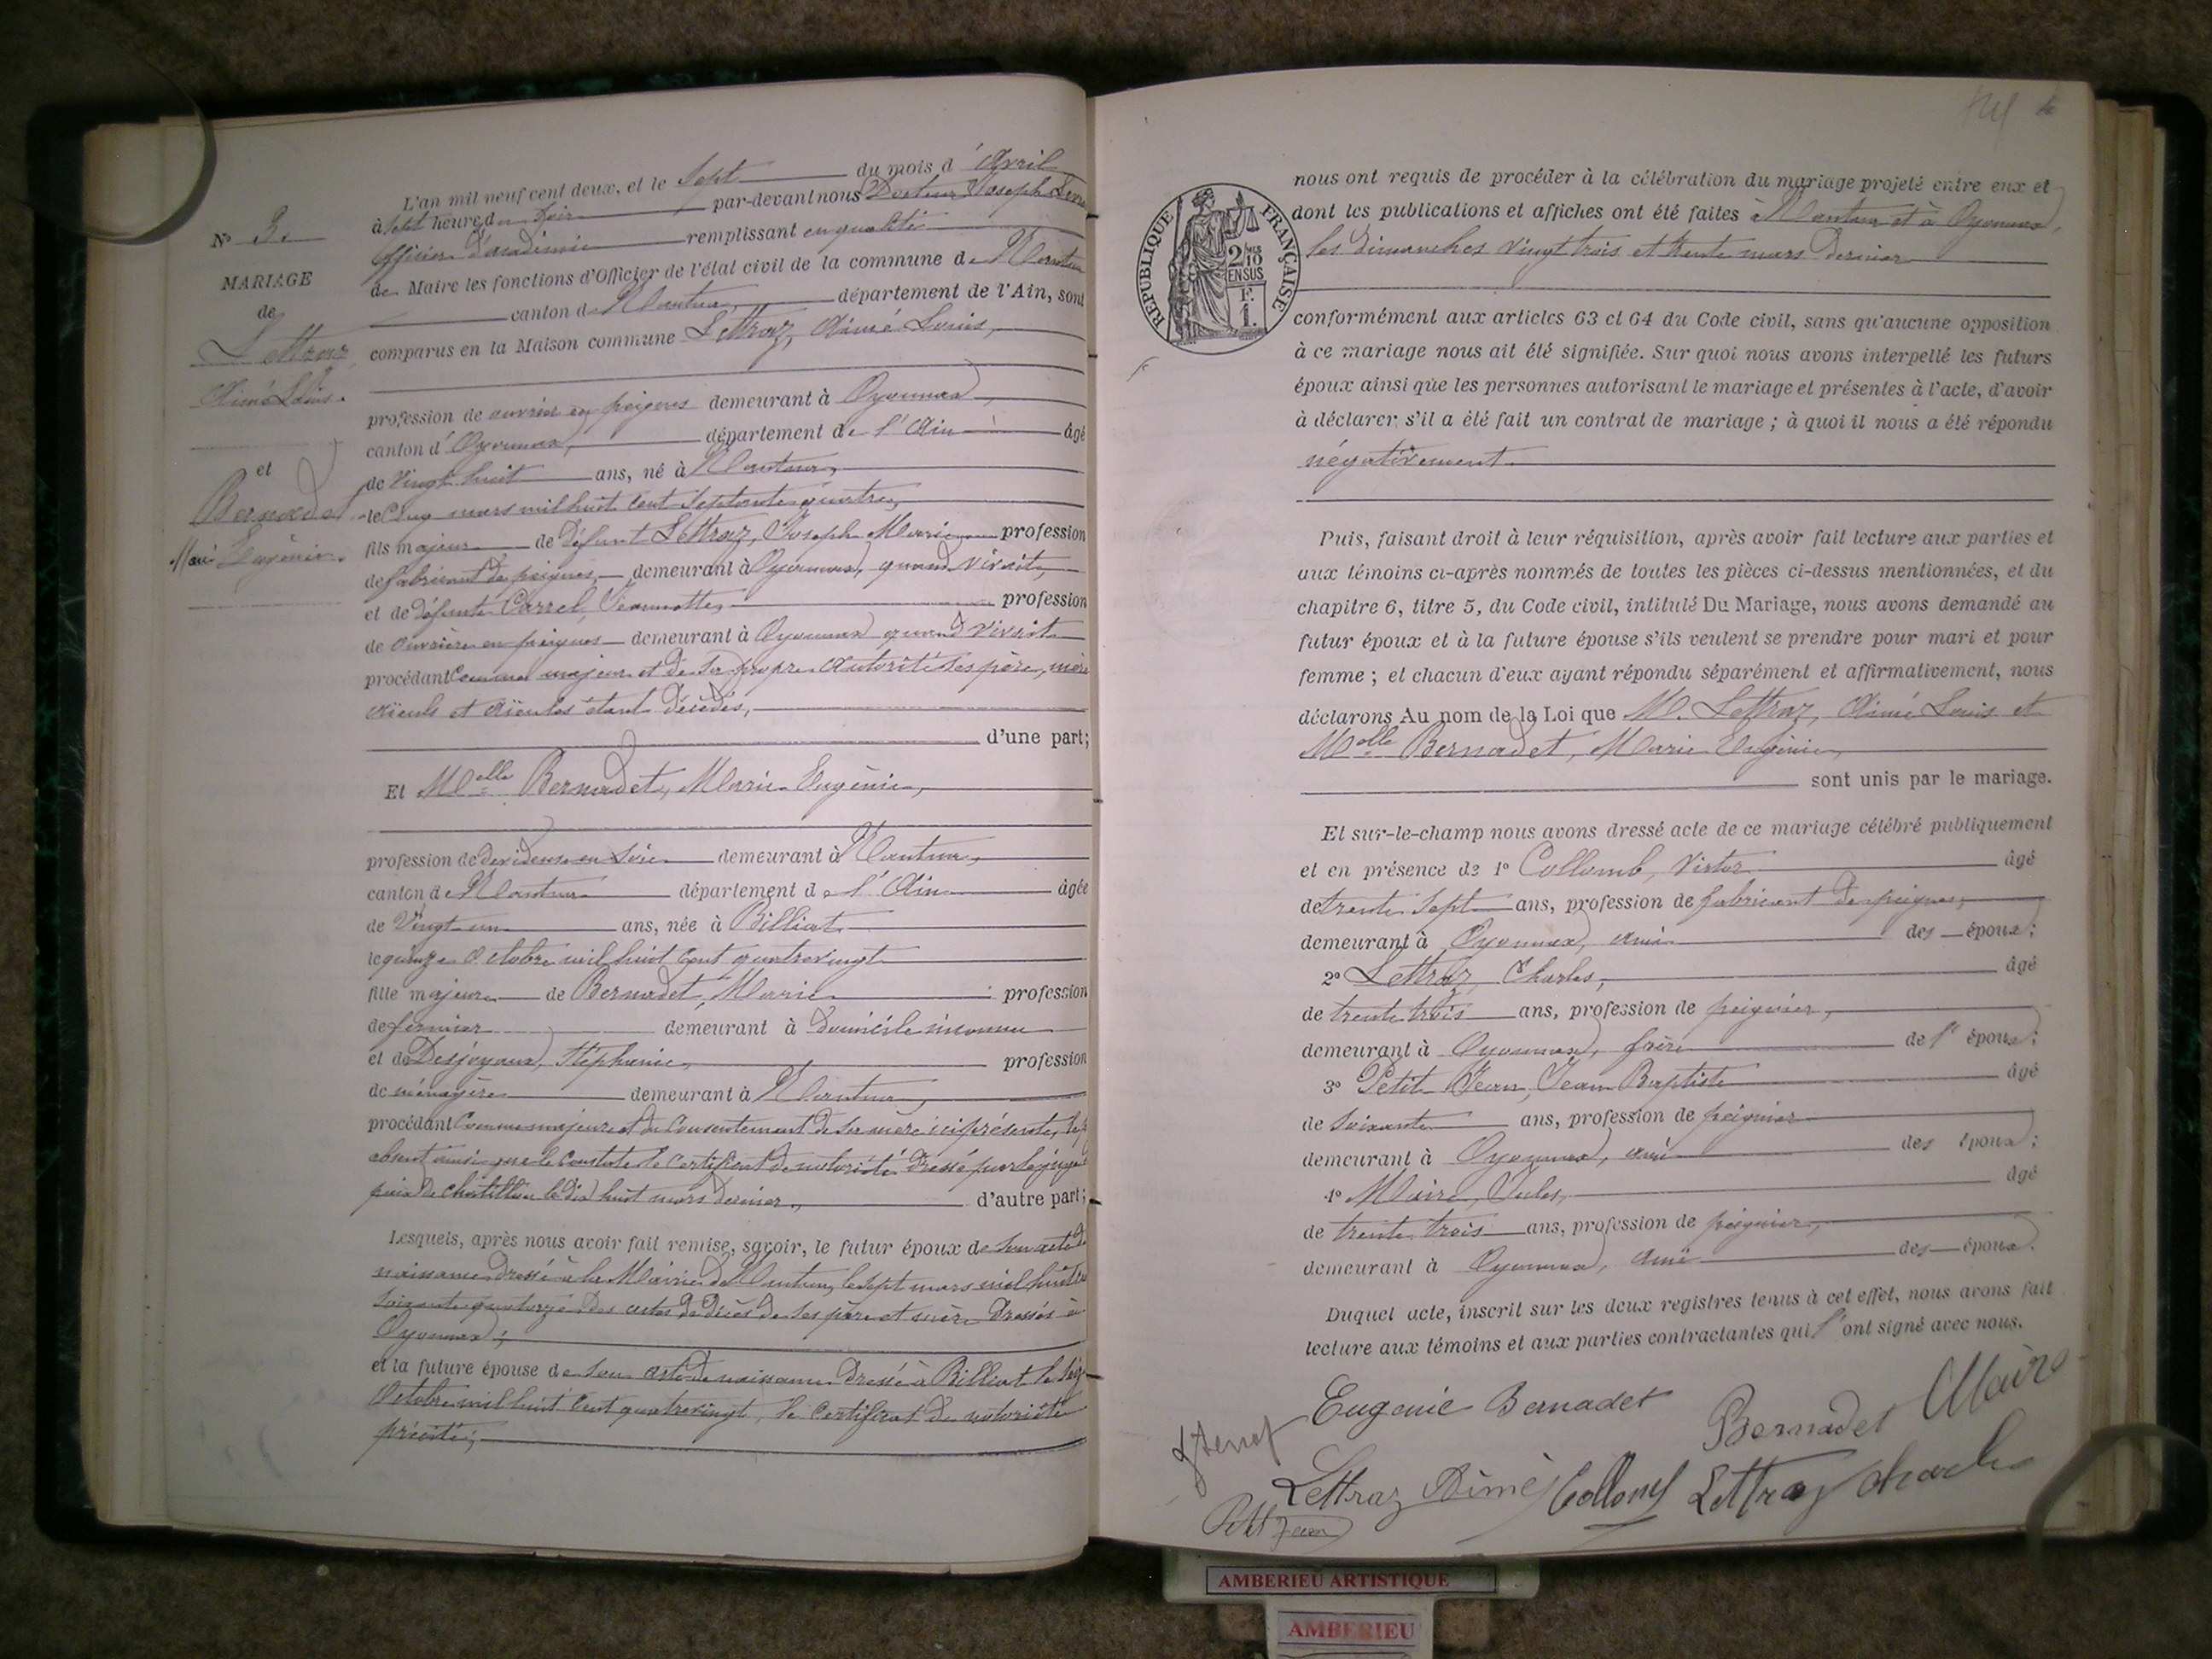 N° 3.
MARIAGE
de
Lettraz
Aimé Louis.
et
Bernadet
Marie Eugénie.
L'an mil neuf cent deux, et le Sept du mois d'Avril
à Sept heures du Soir par-devant nous Docteur Joseph
Officier d'académie remplissant en qualité
de Maire les fonctions d'Officier de l'état civil de la commune de Nantua
canton de Nantua, département de l'Ain, sont
comparus en la Maison commune Lettraz, Aimé Louis,
profession de ouvrier en peignes demeurant à Oyonnax,
canton d'Oyonnax, département de l'Ain âgé
de Vingt huit ans, né à Nantua,
le Cinq mars mil huit cent Septante quatre,
fils majeur de défunt Lettraz, Joseph Marie profession
de fabricant de peignes, demeurant à Oyonnax, quand vivait,
et de défunte Carrel, Jeannette, profession
de ouvrière en peignes demeurant à Oyonnax quand vivait
procédant Comme majeur et de sa propre autorité ses père, mère
aïeuls et aïeules étant décédés,
d'une part;
Et Melle Bernadet, Marie Eugénie,
profession de dévideuse en Soie demeurant à Nantua,
canton de Nantua département de l'Ain âgée
de Vingt un ans, née à Billiat
le quinze Octobre mil huit Cent quatrevingt
fille majeure de Bernadet, Marie profession
de fermier demeurant à domicile inconnu
et de Desjoyaux, Stéphanie, profession
de ménagère demeurant à Nantua,
procédant Comme majeure et du Consentement de sa mère ici présente, le p
absent ainsi que le Constate le Certificat de notoriété dressé par le juge d
paix de Châtillon le dix huit mars dernier, d'autre part;
Lesquels, après nous avoir fait remise, savoir, le futur époux de Son acte de
naissance dressé à la Mairie de Nantua, le sept mars mil huit
soixante quatorze des actes de décès de ses père et mère dressés à
Oyonnax;
et la future épouse de Son acte de naissance dressé à Billiat le Seize
Octobre mil huit Cent quatrevingt, le Certificat de notoriété
précité;
RÉPUBLIQUE FRANÇAISE
2/10 EN SUS
F. 1.
nous ont requis de procéder à la célébration du mariage projeté entre eux et
dont les publications et affiches ont été faites à Nantua et à Oyonnax,
les dimanches Vingt trois et trente mars dernier
conformément aux articles 63 et 64 du Code civil, sans qu'aucune opposition
à ce mariage nous ait été signifiée. Sur quoi nous avons interpellé les futurs
époux ainsi que les personnes autorisant le mariage et présentes à l'acte, d'avoir
à déclarer s'il a été fait un contrat de mariage ; à quoi il nous a été répondu
négativement.
Puis, faisant droit à leur réquisition, après avoir fait lecture aux parties et
aux témoins ci-après nommés de toutes les pièces ci-dessus mentionnées, et du
chapitre 6, titre 5, du Code civil, intitulé Du Mariage, nous avons demandé au
futur époux et à la future épouse s'ils veulent se prendre pour mari et pour
femme ; et chacun d'eux ayant répondu séparément et affirmativement, nous
déclarons Au nom de la Loi que M. Lettraz, Aimé Louis et
Melle Bernadet, Marie Eugénie,
sont unis par le mariage.
Et sur-le-champ nous avons dressé acte de ce mariage célébré publiquement
et en présence de 1° Collomb, Victor âgé
de trente Sept ans, profession de fabricant de peignes,
demeurant à Oyonnax, ami des époux;
2° Lettraz, Charles, âgé
de trente trois ans, profession de peignier,
demeurant à Oyonnax, frère de l'époux;
3° Petit Jean, Jean Baptiste âgé
de Soixante ans, profession de peignier
demeurant à Oyonnax, ami des époux;
4° Maire, Jules, âgé
de trente trois ans, profession de peignier,
demeurant à Oyonnax, ami des époux.
Duquel acte, inscrit sur les deux registres tenus à cet effet, nous avons fait
lecture aux témoins et aux parties contractantes qui l'ont signé avec nous.
Eugenie Bernadet Bernadet Maire
Lettraz Aimé Collomb Lettraz charles
Petit Jean
AMBERIEU ARTISTIQUE
AMBERIEU